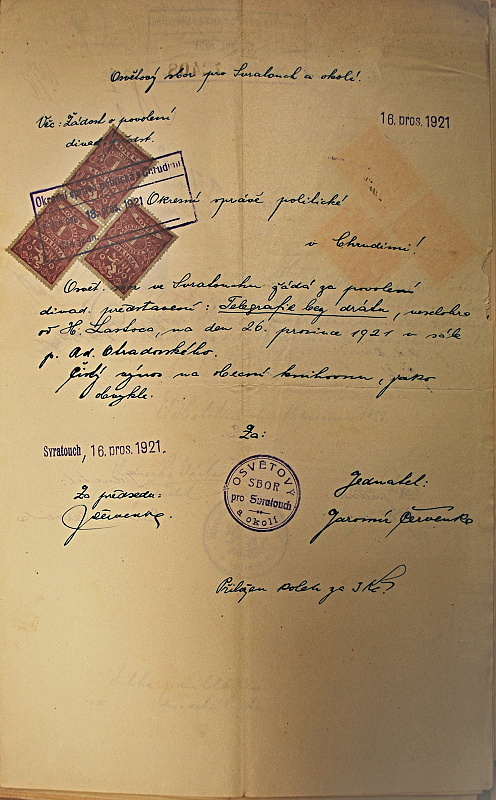 Osvětový sbor pro Svratouch a okolí.
Věc: Žádost o povolení
divad. předst.
16. pros. 1921
Okresní správa politická v Chrudimi
18. 1921
Okresní správě politické
v Chrudimi!
Osvět. sbor ve Svratouchu žádá za povolení
divad. představení: Telegrafie bez drátu, veselohra
od H. na den 26. prosince 1921 v sále
p. Ad.
Čistý výnos na obecní knihovnu, jako
obvykle.
Za:
Svratouch, 16. pros. 1921.
OSVĚTOVÝ
SBOR
pro Svratouch
a okolí
Za předsedu:
JČervenka
Jednatel:
Jaromír Červenka
Přiložen kolek za 3 Kč.